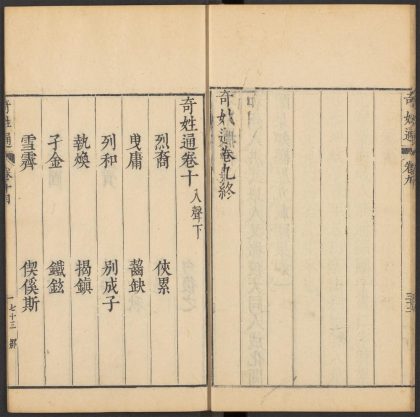 奇姓通 卷九
奇姓通卷九終
奇姓通卷十入聲下
烈裔 俠累
曳庸 齧缺
列和 別成子
執煥 揭鎮
孑金 鐵鉉
雪霽 偰傒斯
奇姓通 卷十目 一 七十三